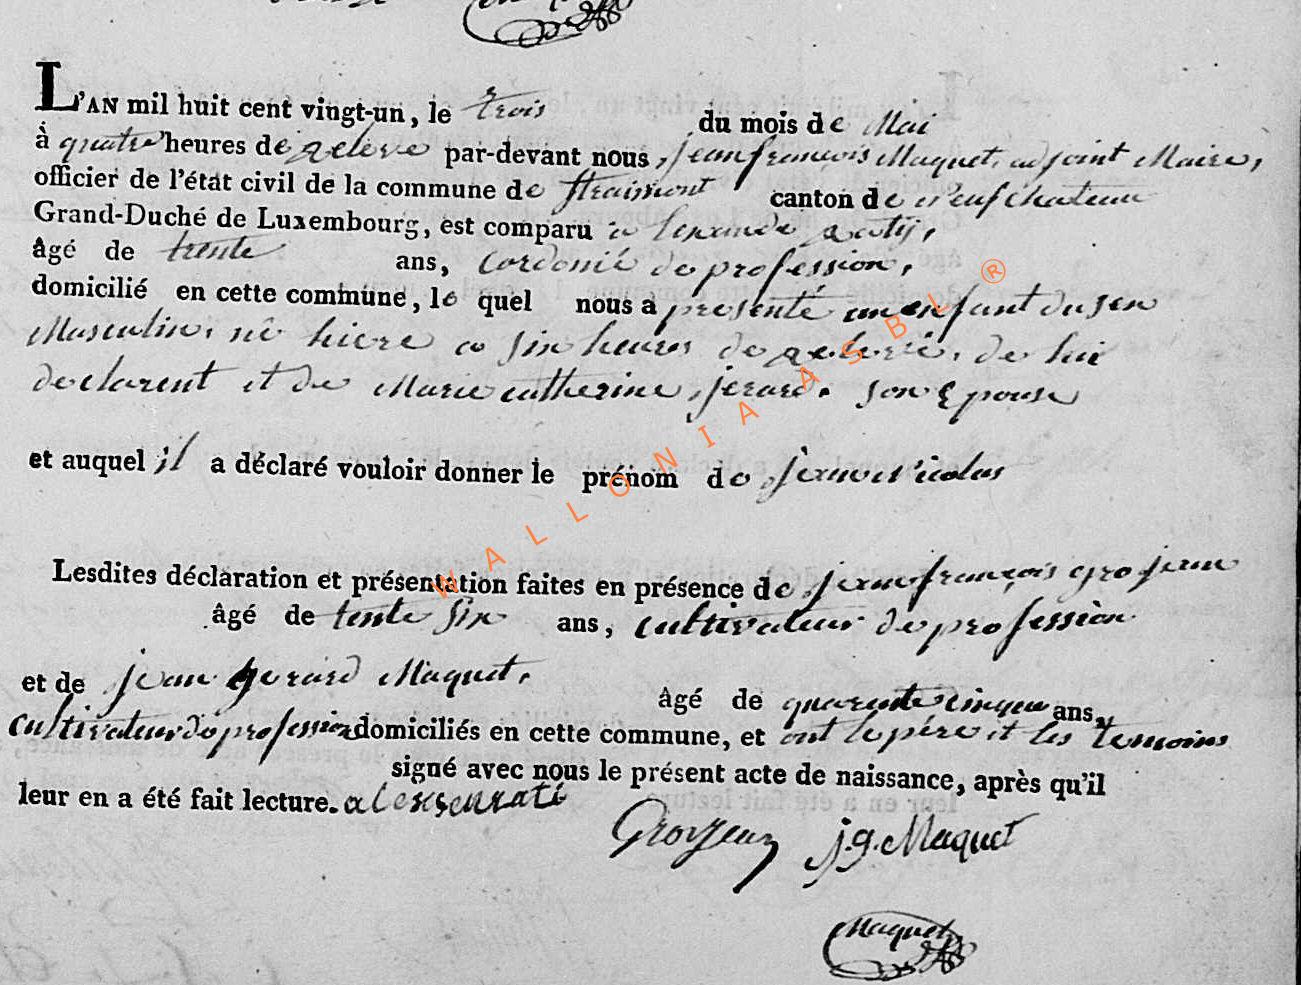 L'AN mil huit cent vingt-un, le trois du mois de Mai
à quatre heures de relevé par-devant nous, jean françois Maquet, adjoint Maire,
officier de l'état civil de la commune de straimont canton de neufchateau
Grand-Duché de Luxembourg, est comparu
âgé de trente ans, cordonié de profession,
domicilié en cette commune, le quel nous a presenté un enfant du sex
Masculin, né hiere a six heures de relevé, de lui
declarent et de Marie catherine, jerard. son Epouse
et auquel il a déclaré vouloir donner le prénom de jean nicolas
Lesdites déclaration et présentation faites en présence de jean françois grosjean
âgé de tente six ans, cultivateur de profession
et de jean gerard Maquet, âgé de quarente cinque ans,
cultivateur de profession domiciliés en cette commune, et ont le père et les temoins
signé avec nous le présent acte de naissance, après qu'il
leur en a été fait lecture.
Grosjean j.g. Maquet
Maquet
WALLONIA ASBL ®